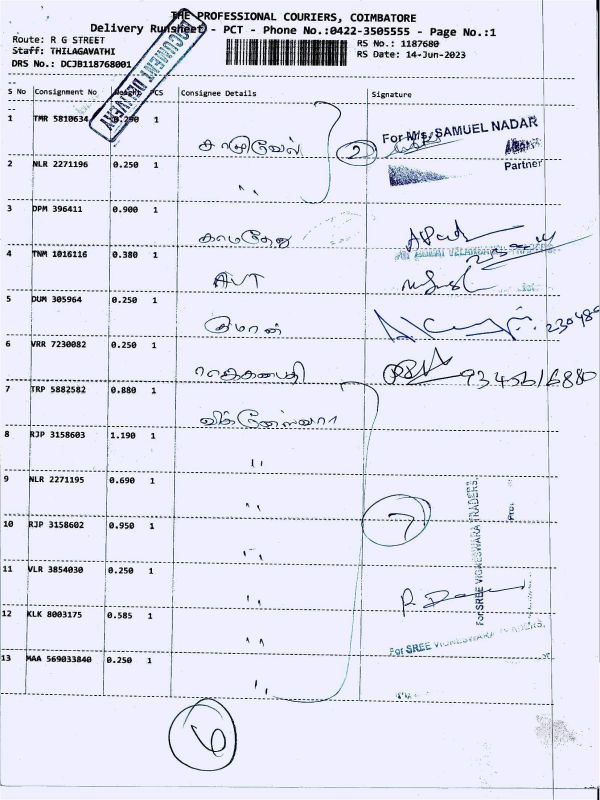 THE PROFESSIONAL COURIERS, COIMBATORE
Delivery Runsheet - PCT - Phone No.:0422-3505555 - Page No.:1
Route: R G STREET
RS No.: 1187680
Staff: THILAGAVATHI
RS Date: 14-Jun-2023
DRS No.: DCJB118768001
S No Consignment No Weight PCS Consignee Details Signature
1 TMR 5810634 0.290 1
சாமுவேல் 2 For M/s. SAMUEL NADAR
2 NLR 2271196 0.250 1 Partner
" 
3 DPM 396411 0.900 1
காமதேனு
4 TNM 1016116 0.380 1
AVT
5 DUM 305964 0.250 1
குமரன்
6 VRR 7230082 0.250 1
9345616880
7 TRP 5882582 0.880 1
விக்னேஸ்வரா
8 RJP 3158603 1.190 1
"
9 NLR 2271195 0.690 1
"
10 RJP 3158602 0.950 1 7
"
11 VLR 3854030 0.250 1
"
12 KLK 8003175 0.585 1
" For SREE VIGNESWARA TRADERS.
13 MAA 569033840 0.250 1
"
For SREE VIGNESWARA TRADERS.
6